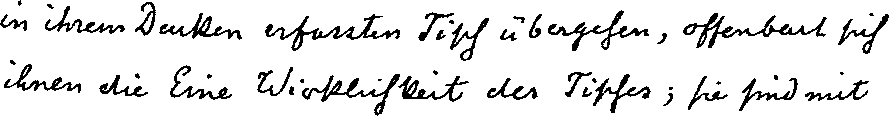 in ihrem Denken erfassten Tisch übergehen, offenbart sich
ihnen die Eine Wirklichkeit des Tisches; sie sind mit